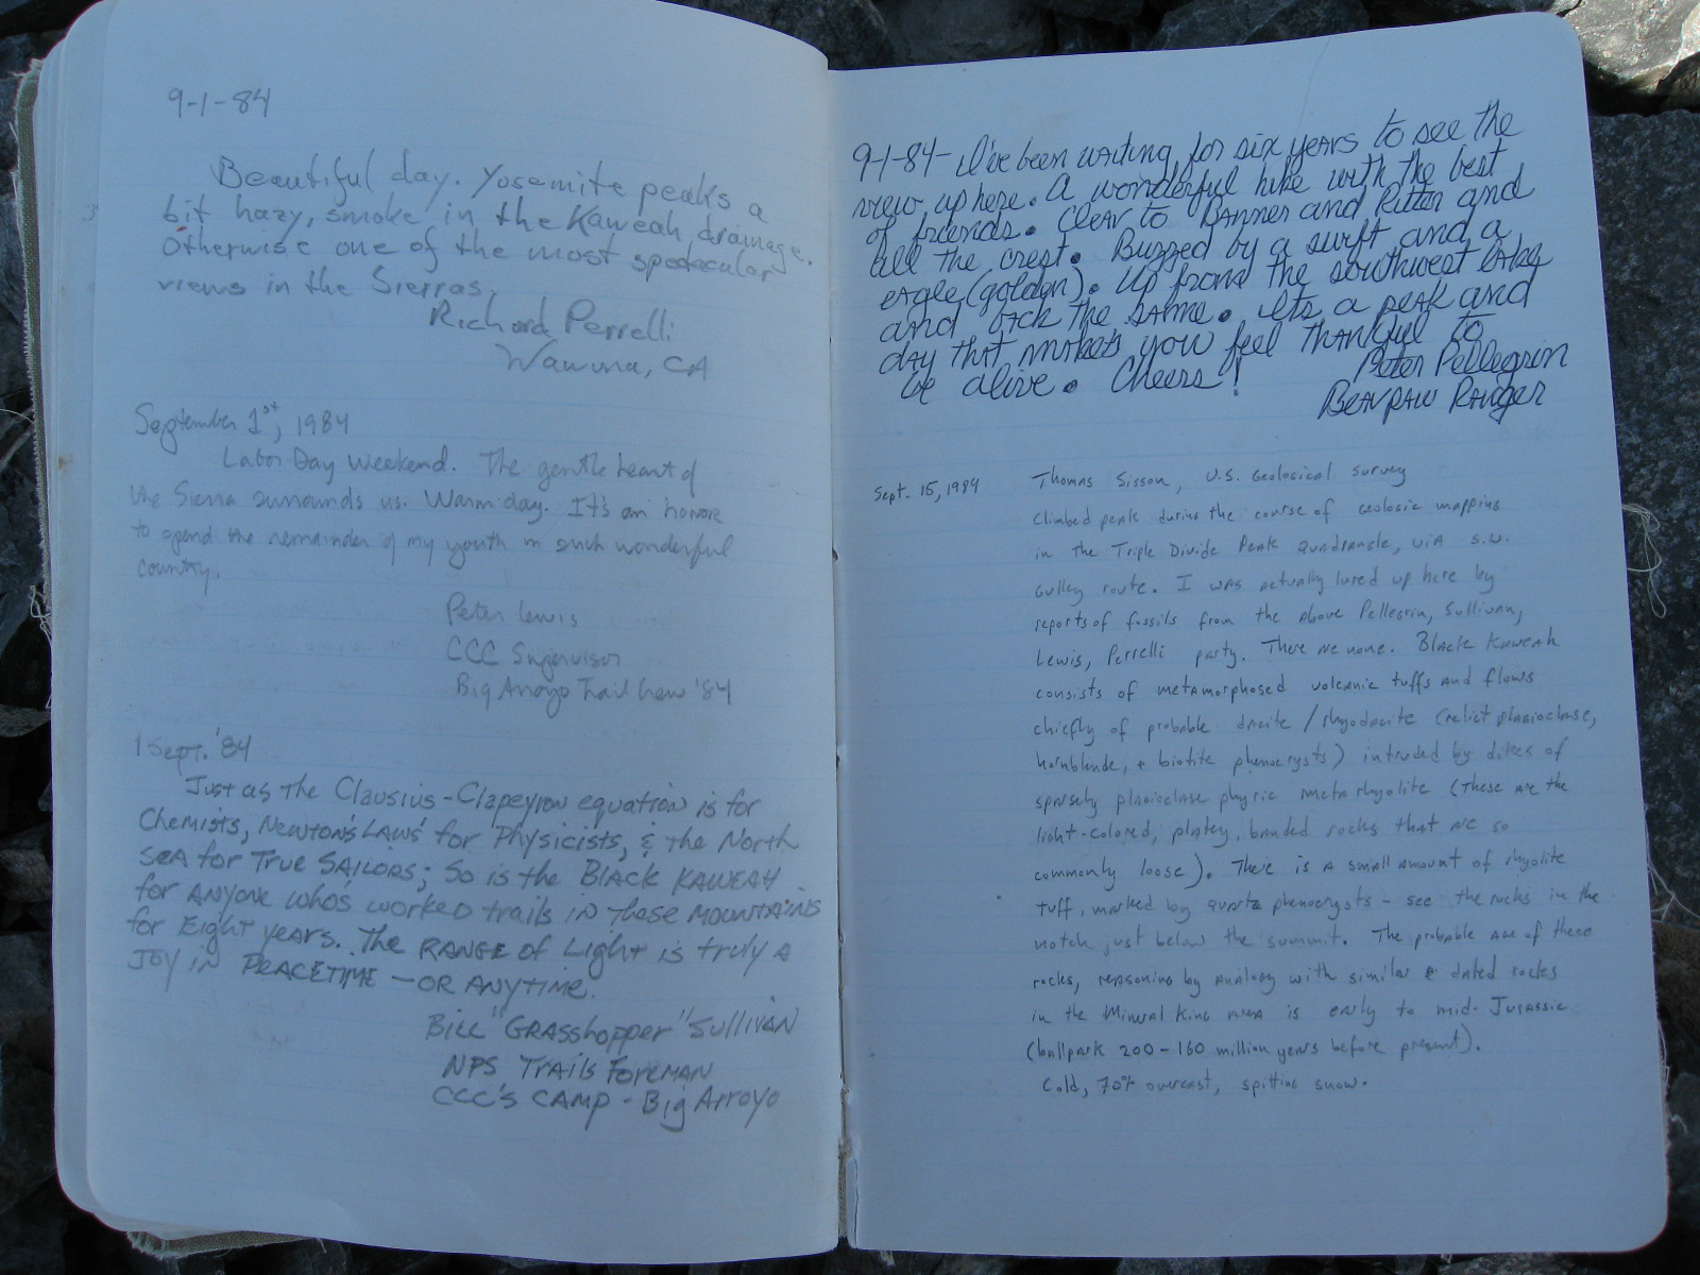 9-1-84
Beautiful day. Yosemite peaks a
bit hazy, smoke in the Kaweah drainage.
Otherwise one of the most spectacular
views in the Sierras.
Richard Perrelli
Wawona, CA
September 1st, 1984
Labor Day Weekend. The gentle heart of
the Sierra surrounds us. Warm day. It's an honor
to spend the remainder of my youth in such wonderful
country.
Peter Lewis
CCC Supervisor
Big Arroyo Trail Crew '84
1 Sept. '84
Just as the Clausius-Clapeyron equation is for
Chemists, Newton's Laws for Physicists, & the North
Sea for True Sailors; So is the Black Kaweah
for anyone who's worked trails in these mountains
for Eight years. The Range of Light is truly a
Joy in Peacetime — or anytime.
Bill "Grasshopper" Sullivan
NPS Trails Foreman
CCC's Camp - Big Arroyo
9-1-84- I've been waiting for six years to see the
view up here. A wonderful hike with the best
of friends. Clear to Banner and Ritter and
all the crest. Buzzed by a swift and a
eagle (golden). Up from the southwest
and back the same. Its a peak and
day that makes you feel thankful to
be alive. Cheers!
Peter Pellegrin
Bearpaw Ranger
Sept. 15, 1984
Thomas Sisson, U.S. Geological Survey
Climbed peak during the course of geologic mapping
in the Triple Divide Peak quadrangle, via S.W.
gulley route. I was actually lured up here by
reports of fossils from the above Pellegrin, Sullivan,
Lewis, Perrelli party. There are none. Black Kaweah
consists of metamorphosed volcanic tuffs and flows
chiefly of probable dacite / rhyodacite (relict plagioclase,
hornblende, + biotite phenocrysts) intruded by dikes of
sparsely plagioclase phyric metarhyolite (these are the
light-colored, platey, banded rocks that are so
commonly loose). There is a small amount of rhyolite
tuff, marked by quartz phenocrysts - see the rocks in the
notch just below the summit. The probable age of these
rocks, reasoning by analogy with similar & dated rocks
in the Mineral King area is early to mid-Jurassic
(ballpark 200-160 million years before present).
Cold, 70% overcast, spitting snow.